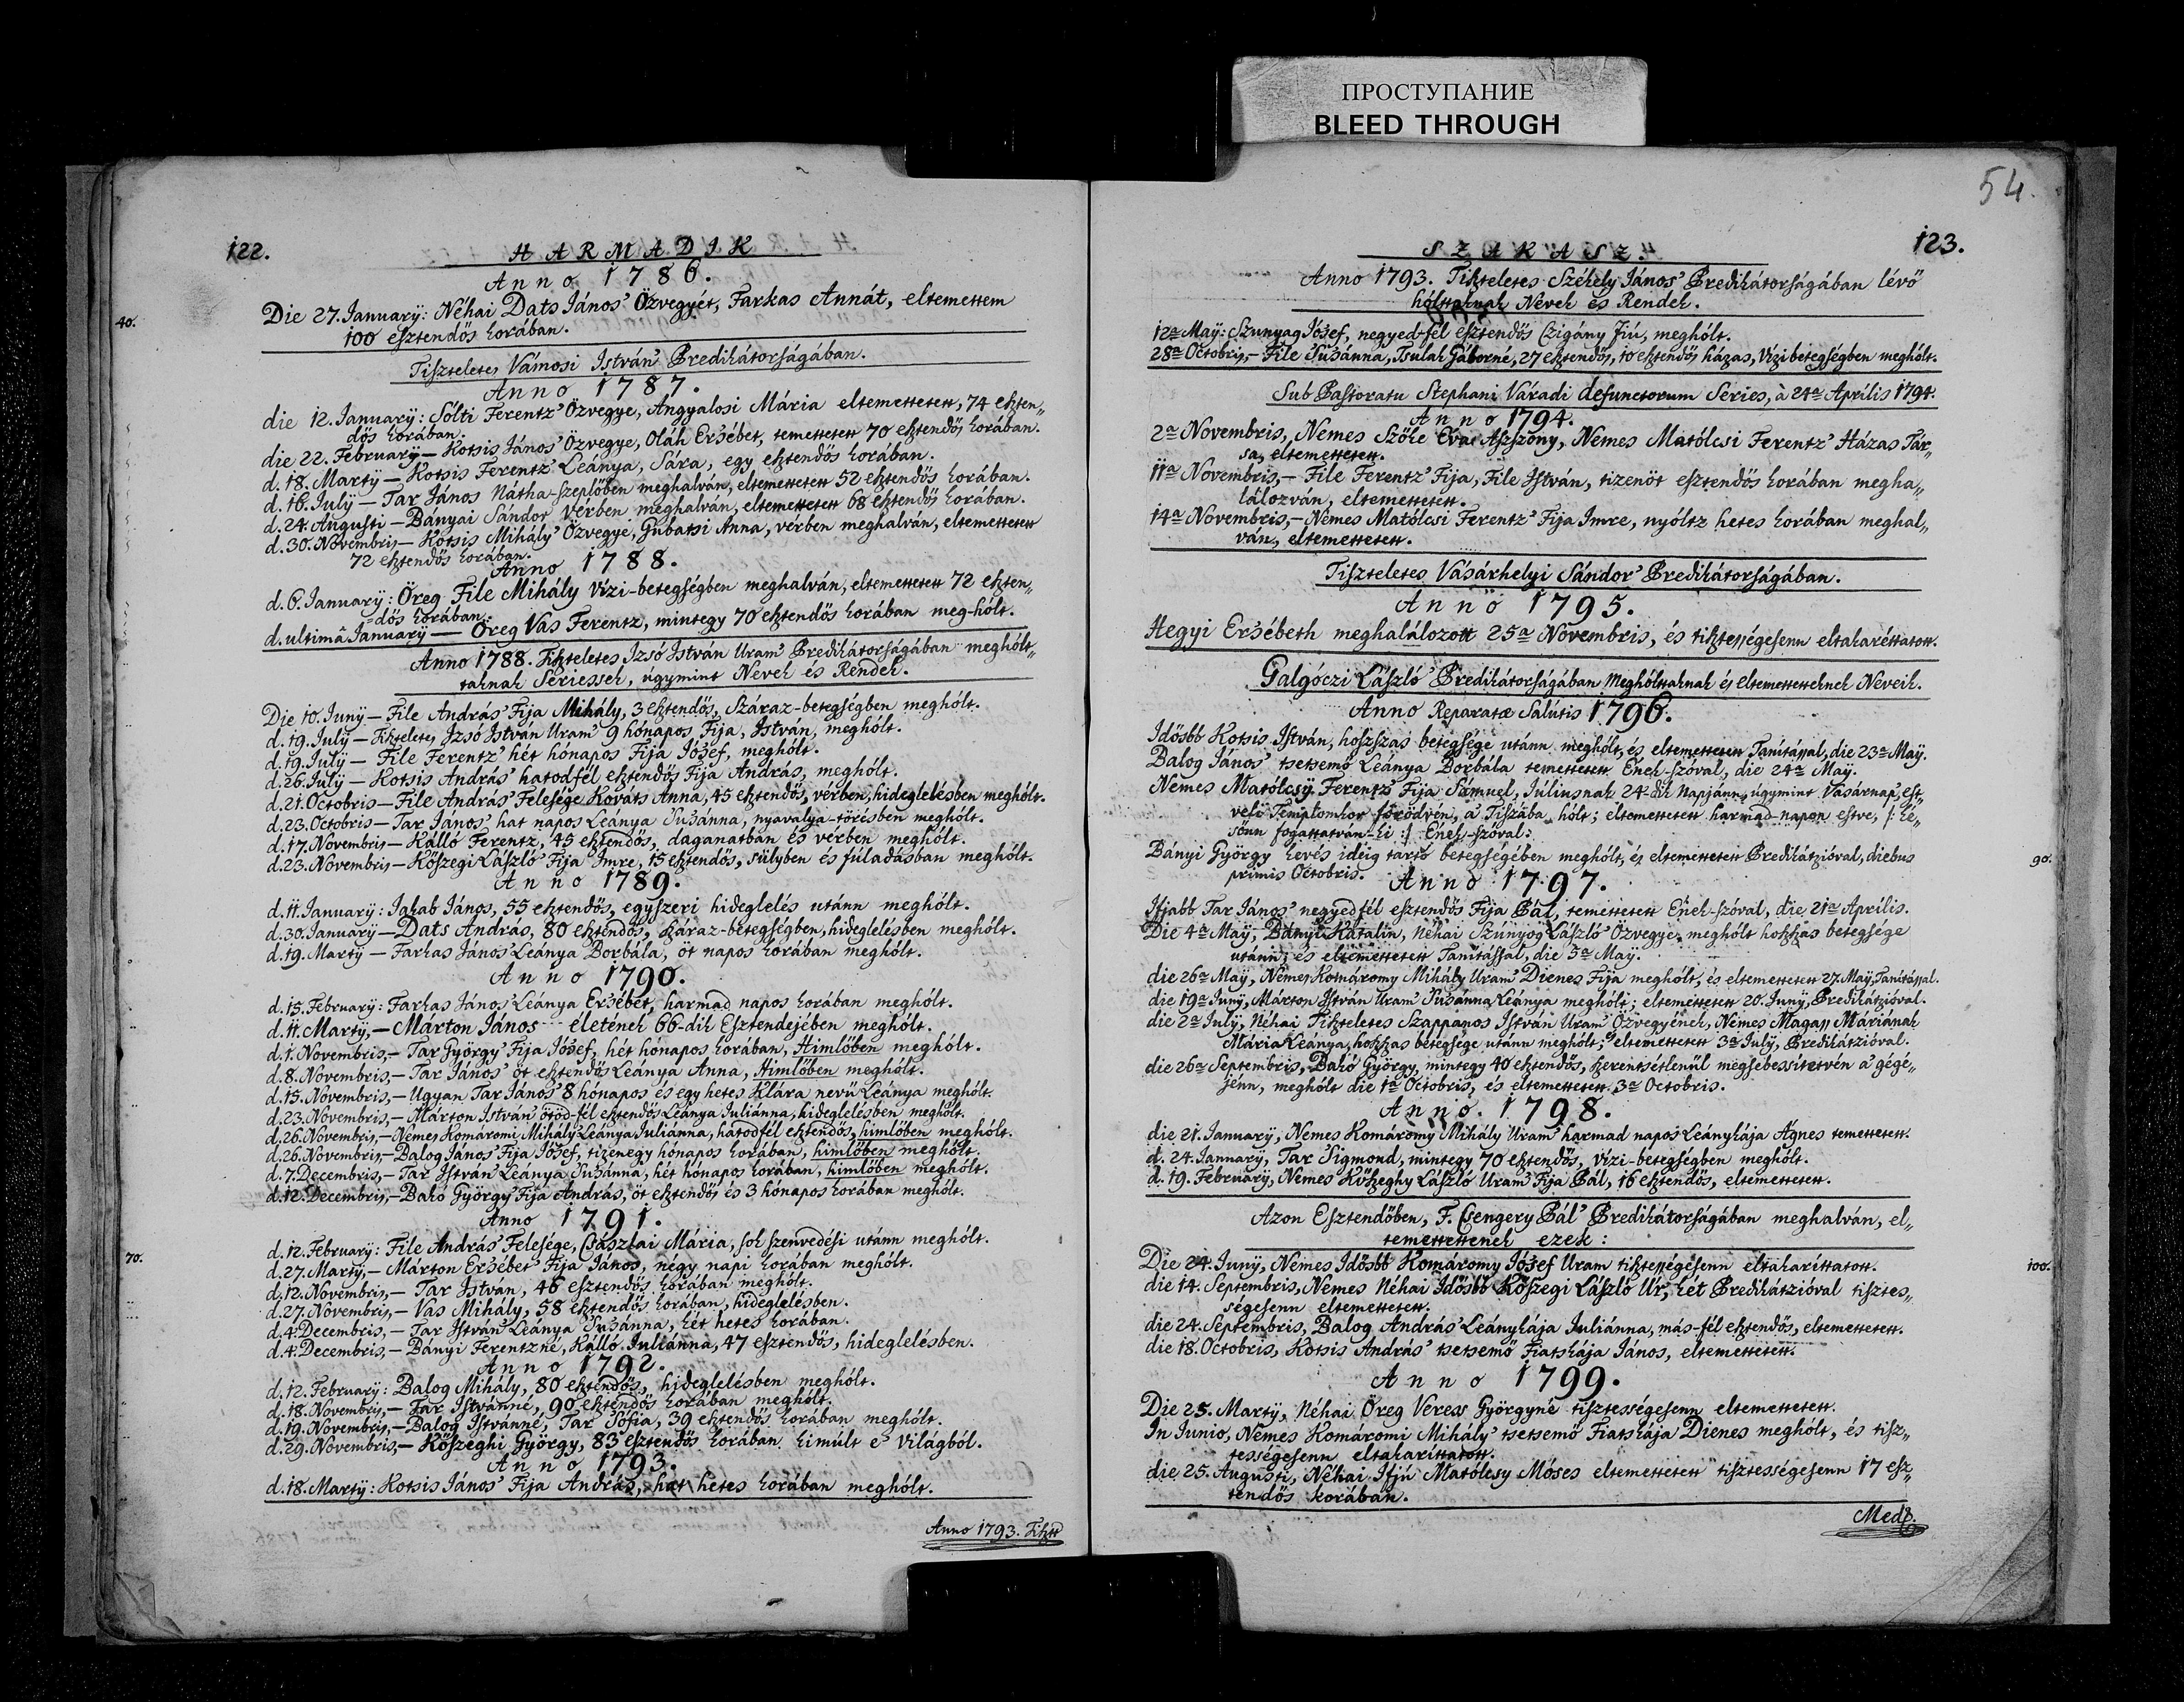 ПРОСТУПАНИЕ
BLEED THROUGH
54.
122.
HARMADIK
Anno 1786.
40.
Die 27. Januarÿ: Néhai Dats János' Özvegyét, Farkas Annát, eltemettem
100 esztendős korában.
Tiszteletes Vámosi István' Predikátorságában.
Anno 1787.
die 12. Januarÿ: Sólti Ferentz' Özvegye, Angyalosi Mária eltemettetett, 74 eszten„
dős korában.
die 22. Februarÿ — Kotsis János' Özvegye, Oláh Ersébet, temettetett 70 esztendős korában.
d. 18. Martÿ — Kotsis Ferentz' Leánya, Sára, egy esztendős korában.
d. 16. Julÿ — Tar János Nátha-szeplőben meghalván, eltemettetett 52 esztendős korában.
d. 24. Augusti — Bányai Sándor vérben meghalván, eltemettetett 68 esztendős korában.
d. 30. Novembris — Kotsis Mihály' Özvegye, Gubatsi Anna, vérben meghalván, eltemettetett
72 esztendős korában.
Anno 1788.
d. 6. Januarÿ: Öreg File Mihály vizi-betegségben meghalván, eltemettetett 72 eszten„
dős korában.
d. ultimâ Januarÿ — Öreg Vas Ferentz, mintegy 70 esztendős korában meg-hólt.
Anno 1788. Tiszteletes Izsó István Uram' Predikátorságában meghólt„
taknak Seriessek, úgymint Nevek és Rendek.
Die 10. Junÿ — File András' Fija Mihály, 3 esztendős, Száraz-betegségben meghólt.
d. 19. Julÿ — Tiszteletes Izsó István Uram' 9 hónapos Fija, István, meghólt.
d. 19. Julÿ — File Ferentz' hét hónapos Fija Jósef, meghólt.
d. 26. Julÿ — Kotsis András' hatodfél esztendős Fija András, meghólt.
d. 21. Octobris — File András' Felesége Kováts Anna, 45 esztendős, vérben, hideglelésben meghólt.
d. 23. Octobris — Tar János' hat napos Leánya Susánna, nyavalya-törésben meghólt.
d. 17. Novembris — Kálló Ferentz, 45 esztendős, daganatban és vérben meghólt.
d. 23. Novembris — Kőszegi László' Fija Imre, 15 esztendős, sülyben és fúladásban meghólt.
Anno 1789.
d. 11. Januarÿ: Jakab János, 55 esztendős, egyszeri hideglelés utánn meghólt.
d. 30. Januarÿ — Dats András, 80 esztendős, száraz-betegségben, hideglelésben meghólt.
d. 19. Martÿ — Farkas János' Leánya Borbála, öt napos korában meghólt.
Anno 1790.
d. 15. Februarÿ: Farkas János' Leánya Ersébet, harmad napos korában meghólt.
d. 11. Martÿ, — Márton János életének 66-dik Esztendejében meghólt.
d. 1. Novembris, — Tar György' Fija Jósef, hét hónapos korában, Himlőben meghólt.
d. 8. Novembris, — Tar János' öt esztendős Leánya Anna, Himlőben meghólt.
d. 15. Novembris, — Ugyan Tar János' 8 hónapos és egy hetes Klára nevű Leánya meghólt.
d. 23. Novembris, — Márton István' ötöd-fél esztendős Leánya Juliánna, hideglelésben meghólt.
d. 26. Novembris, — Nemes Komáromi Mihály' Leánya Juliánna, hatodfél esztendős, himlőben meghólt.
d. 26. Novembris, — Balog János' Fija Jósef, tizenegy hónapos korában, himlőben meghólt.
d. 7. Decembris, — Tar István' Leánya Susánna, hét hónapos korában, himlőben meghólt.
d. 12. Decembris, — Bakó György' Fija András, öt esztendős és 3 hónapos korában meghólt.
Anno 1791.
70.
d. 12. Februarÿ: File András' Felesége, Császlai Mária, sok szenvedési utánn meghólt.
d. 27. Martÿ, — Márton Ersébet' Fija János, négy napi korában meghólt.
d. 12. Novembris, — Tar István, 46 esztendős korában meghólt.
d. 27. Novembris, — Vas Mihály, 58 esztendős korában, hideglelésben.
d. 4. Decembris, — Tar István' Leánya Susánna, hét hetes korában.
d. 4. Decembris, — Bányi Ferentzné, Kálló Juliánna, 47 esztendős, hideglelésben.
Anno 1792.
d. 12. Februarÿ: Balog Mihály, 80 esztendős, hideglelésben meghólt.
d. 18. Novembris, — Tar Istvánné, 90 esztendős korában meghólt.
d. 19. Novembris, — Balog Istvánné, Tar Sófia, 39 esztendős korában meghólt.
d. 29. Novembris, — Kőszeghi György, 83 esztendős korában kimúlt e' Világból.
Anno 1793.
d. 18. Martÿ: Kotsis János' Fija András, hat hetes korában meghólt.
Anno 1793. Tisztt
123.
SZAKASZ.
Anno 1793. Tiszteletes Székely János' Predikátorságában lévő
hólttaknak Nevek és Rendek.
12a Maÿ: Szunyag Jósef, negyed-fél esztendős Czigány Fiú, meghólt.
28a Octobris, — File Susánna, Tsulak Gáborné, 27 esztendős, 10 esztendős házas, Vizi betegségben meghólt.
Sub Pastoratu Stephani Váradi defunctorum Series, à 24a Aprilis 1794.
Anno 1794.
2a Novembris, Nemes Szőke Éva Aszszony, Nemes Matólcsi Ferentz' Házas Tár„
sa, eltemettetett.
11a Novembris, — File Ferentz' Fija, File István, tizenöt esztendős korában megha„
lálozván, eltemettetett.
14a Novembris, — Nemes Matólcsi Ferentz' Fija Imre, nyóltz hetes korában meghal„
ván, eltemettetett.
Tiszteletes Vásárhelyi Sándor' Predikátorságában.
Anno 1795.
Hegyi Ersébeth meghalálozott 25a Novembris, és tisztességesenn eltakaréttatott.
Galgóczi László' Predikátorságában Meghólttaknak és eltemettetteknek Neveik.
Anno Reparatæ Salútis 1796.
Idősbb Kotsis István, hoszszas betegsége utánn meghólt, és eltemettetett Tanítással, die 23a Maÿ.
Balog János' tsetsemő Leánya Borbála temettetett Ének-szóval, die 24a Maÿ.
Nemes Matólcsÿ Ferentz' Fija Sámuel, Júliusnak 24-dik Napjánn, úgymint Vasárnap, est„
véli Templomkor förödvén, a' Tiszába hólt; eltemettetett harmad-napon estve, |: ké„
sőnn fogattatván-ki :| Ének-szóval:
90.
Bányi György kevés idéig tartó betegségében meghólt, és eltemettetett Predikátzióval, diebus
primis Octobris.
Anno 1797.
Ifjabb Tar János' negyedfél esztendős Fija Pál, temettetett Ének-szóval, die 21a Aprilis.
Die 4a Maÿ, Bányi Katalin, Néhai Szunyog László' Özvegye, meghólt hoszszas betegsége
utánn; és eltemettetett Tanítással, die 5a Maÿ.
die 26a Maÿ, Nemes Komáromy Mihály Uram' Dienes Fija meghólt, és eltemettetett 27. Maÿ, Tanítással.
die 19a Junÿ, Márton István Uram' Susánna Leánya meghólt; eltemettetett 20. Junÿ, Predikátzióval.
die 2a Julÿ, Néhai Tiszteletes Szappanos István Uram' Özvegyének, Nemes Magass Máriának
Mária Leánya, hoszszas betegsége utánn meghólt; eltemettetett 3a Julÿ, Predikátzióval.
die 26a Septembris, Bakó György, mintegy 40 esztendős, szerentsétlenűl megsebessíttetvén a' gégé„
jénn, meghólt die 1a Octobris, és eltemettetett 3a Octobris.
Anno. 1798.
die 21. Januarÿ, Nemes Komáromy Mihály Uram' harmad napos Leánykája Ágnes temettetett.
d. 24. Januarÿ, Tar Sigmond, mintegy 70 esztendős, vizi-betegségben meghólt.
d. 19. Februarÿ, Nemes Kőszeghy László Uram' Fija Pál, 16 esztendős, eltemettetett.
Azon Esztendőben, F. Csengery Pál' Predikátorságában meghalván, el„
temettettenek ezek:
100.
Die 24. Junÿ, Nemes Idősbb Komáromy Jósef Uram tisztességesenn eltakaríttatott.
die 14. Septembris, Nemes Néhai Idősbb Kőszegi László Úr, két Predikátzióval tisztes„
ségesenn eltemettetett.
die 24. Septembris, Balog András' Leánykája Juliánna, más-fél esztendős, eltemettetett.
die 18. Octobris, Kotsis András' tsetsemő Fiatskája János, eltemettetett.
Anno 1799.
Die 25. Martÿ, Néhai Öreg Veress Györgyné tisztességesenn eltemettetett.
In Junio, Nemes Komáromi Mihály' tsetsemő Fiatskája Dienes meghólt, és tisz„
tességesenn eltakaríttatott.
die 25. Augusti, Néhai Ifjú Matólcsy Móses eltemettetett tisztességesenn 17 esz„
tendős korában.